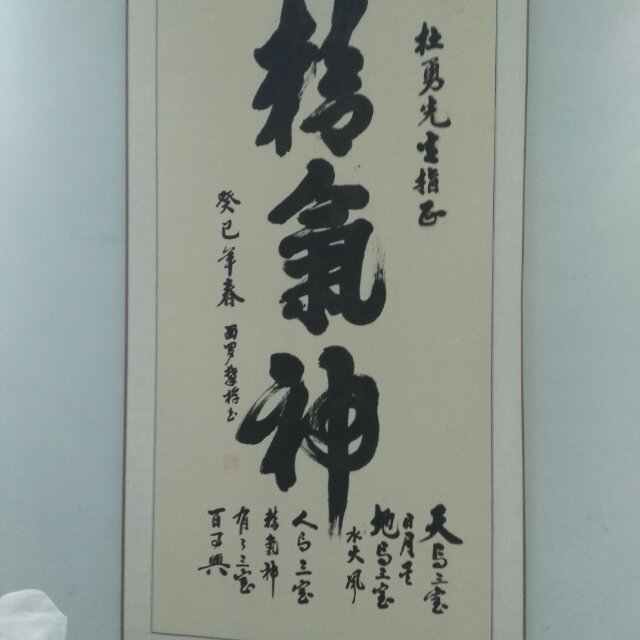 杜勇先生指正
精氣神
癸巳年春
天有三宝
日月星
地有三宝
水火風
人有三宝
精氣神
有了三宝
百事興